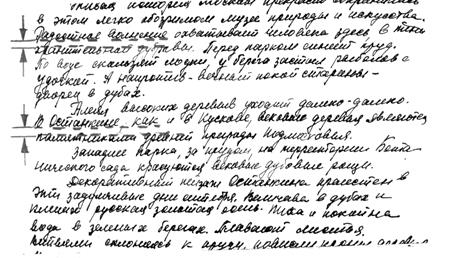 в этом легко обозримом музее природы и искусства.
Радостное волнение охватывает человека здесь, в тени
гигантской дубравы. Перед парком синеет пруд.
По воде скользят лодки, у берега застыл рыболов с
удочкой. А напротив - вечный покой старины -
дворец в дубах.
Аллея высоких деревьев уходит далеко-далеко.
В Останкине, как и в Кускове, вековые деревья являются
памятниками древней природы Подмосковья.
Западнее парка, за прудом, на территории Бота-
нического сада красуются вековые дубовые рощи.
Декоративный пейзаж Останкина прелестен в
эти задумчивые дни октября. Величава в дубах и
кленах русская золотая осень. Тиха и покойна
вода в зеленых берегах. Плавают листья.